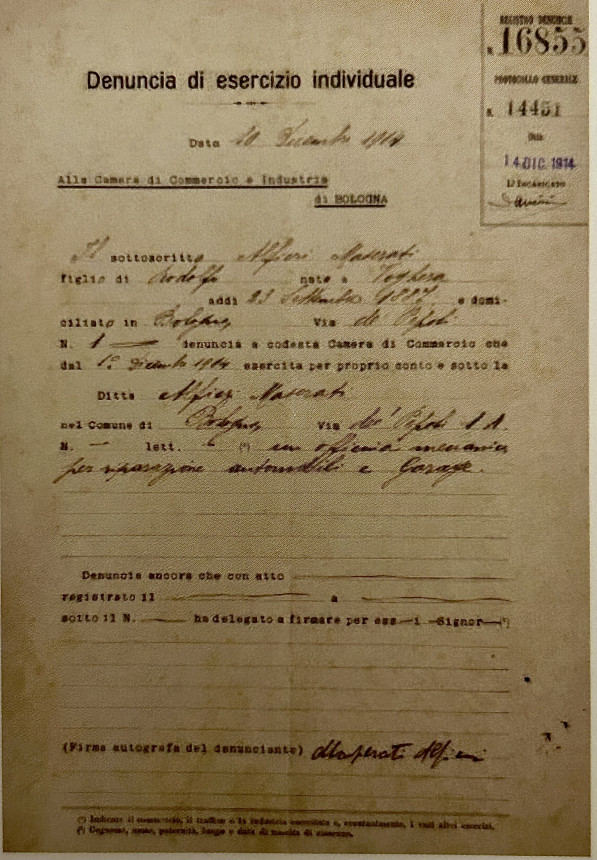 REGISTRO DENUNCIE
N. 16855
PROTOCOLLO GENERALE
N. 14451
Data
14 DIC. 1914
L'INCARICATO
Denuncia di esercizio individuale
Data 10 Dicembre 1914
Alla Camera di Commercio e Industria
di BOLOGNA
Il sottoscritto Alfieri Maserati
figlio di Rodolfo nato a Voghera
addì 23 Settembre 1887 e domi-
ciliato in Bologna Via de' Pepoli
N. 1 denuncia a codesta Camera di Commercio che
dal 1° Dicembre 1914 esercita per proprio conto e sotto la
Ditta Alfieri Maserati
nel Comune di Bologna Via de' Pepoli 1 A.
N. — lett. — (¹) un officina meccanica
per riparazione automobili e Garage.
Denuncia ancora che con atto
registrato il a
sotto il N. ha delegato a firmare per ess i Signor (²)
(Firma autografa del denunciante) Maserati Alfieri
(¹) Indicare il commercio, il traffico o la industria esercitata e, eventualmente, i vari altri esercizi.
(²) Cognome, nome, paternità, luogo e data di nascita di ciascuno.